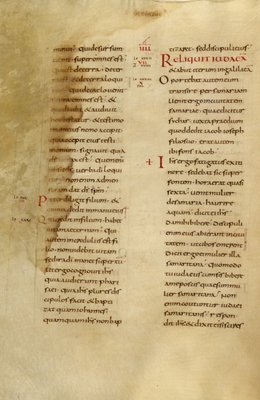 omnes · quidesursum
supraomnesest
quiest deterra
est deterraloqui
quidecaelouenit
omnesest · &
& audiuit
hoctestatur · & testi
moniumeius nemoaccipit
quiaccepit eius testi
monium · signauit quia
dsuerax est · quemenim
misit ds · uerbadiloqui
tur · nonenim admen
suram dat ds spm
Pater diligit filium · &
omniadedit inmanueius
Quicredit infilium · habet
uitamaeternam · qui
autem incredulus est fi
lio · nonuidebit uitam
sediradi manet supereum
utergocognouit ihs
quiaaudierunt phari
saei · quiaihs plures dis
cipulos facit · & bapti
zat quamiohannes
quamquamihs nonbap
IIII
tizaret · seddiscipulieius
Reliquit iudaeam
& abiit iterum ingalilaeam
Oportebat autemeum
transire persamariam
uenit ergo inciuitatem
samariae · quaedicitur
sychar · iuxtapraedium
quoddedit iacob ioseph
filiosuo · erat autem
ibi fons iacob
Ihs ergofatigatus exiti
nere · sedebat sic super
fontem · horaerat quasi
sexta · uenit mulier
desamaria · haurire
aquam · dicit eiihs
damihibibere · discipuli
enimeius abierant inciuita
tem · utcibosemerent
dicit ergoeimulier illa
samaritana · quomodo
tuiudaeus cumsis bibere
ameposcis quaesummu
lier samaritana · non
enimcoutuntur iudaei
samaritanis · respon
dit ihs & dixit eisiscires